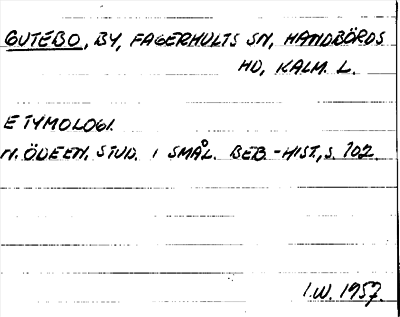 GUTEBO, BY, FAGERHULTS SN, HANDBÖRDS
HD, KALM. L.
ETYMOLOGI.
N. ÖDEEN. STUD. I SMÅL. BEB.-HIST., S. 102.
I.W. 1957.